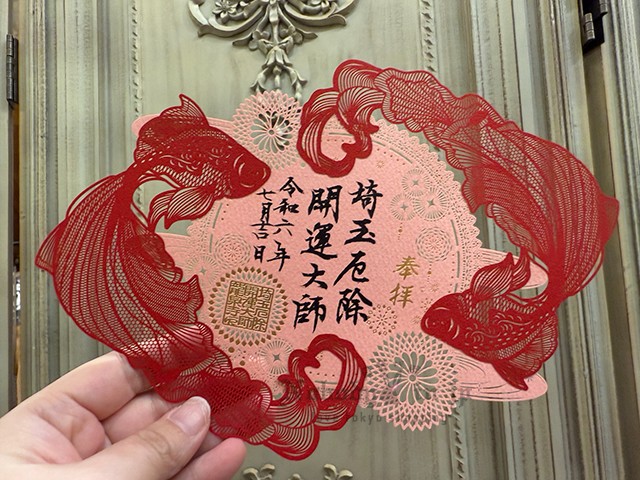 奉拝
埼玉厄除
開運大師
令和六年
七月吉日